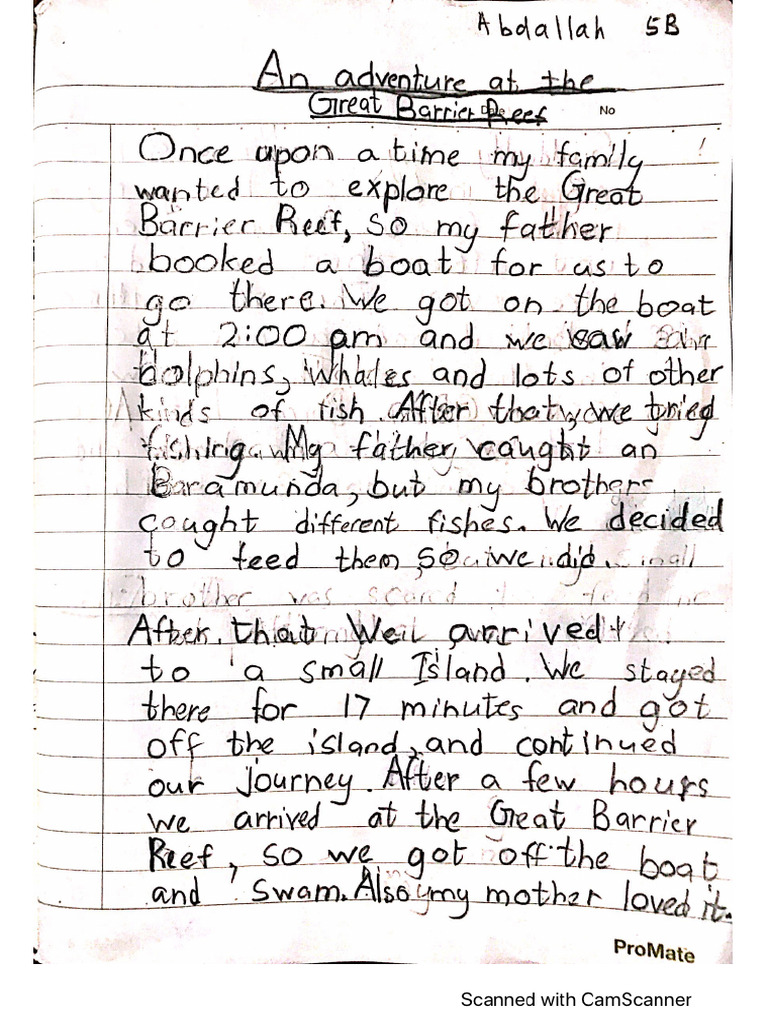 Abdallah 5B
An adventure at the
Great Barrier Reef
No
Once upon a time my family
wanted to explore the Great
Barrier Reef, so my father
booked a boat for us to
go there. We got on the boat
at 2:00 pm and we saw
dolphins, Whales and lots of other
kinds of fish. After that, we tried
fishing. My father caught an
Baramunda, but my brothers
cought different fishes. We decided
to feed them so we did.
After that We arrived
to a small Island. We stayed
there for 17 minutes and got
off the island, and continued
our journey. After a few hours
we arrived at the Great Barrier
Reef, so we got off the boat
and swam. Also my mother loved it.
ProMate
Scanned with CamScanner